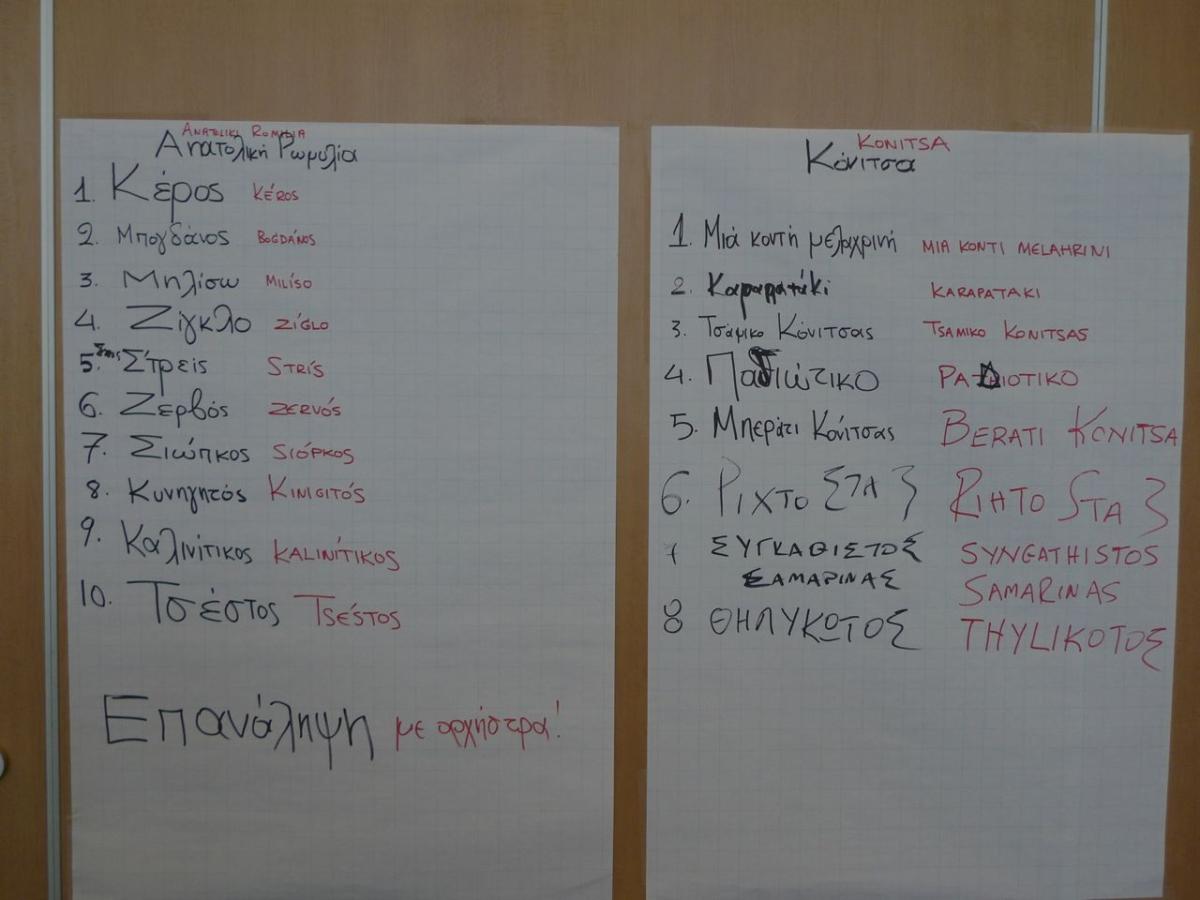 ANATOLIKI ROMILIA
Ανατολική Ρωμυλία
1. Κέρος KÉROS
2. Μπογδάνος BOGDÁNOS
3. Μηλίσω MILÍSO
4. Ζίγκλο ZÍGLO
5. Στρεις STRÍS
6. Ζερβός ZERVÓS
7. Σιώπκος SIÓPKOS
8. Κυνηγητός KINIGITÓS
9. Καλινίτικος KALINÍTIKOS
10. Τσέστος TSÉSTOS
Επανάληψη με αρχήστρα!
KONITSA
Κόνιτσα
1. Μιά κοντή μελαχρινή MIA KONTI MELAHRINI
2. Καραπατάκι KARAPATAKI
3. Τσάμικο Κόνιτσας TSAMIKO KONITSAS
4.
5. Μπεράτι Κόνιτσας BERATI KONITSA
6. ΡΙΧΤΟ ΣΤΑ 3 RIHTO STA 3
7 ΣΥΓΚΑΘΙΣΤΟΣ SYNGATHISTOS
ΣΑΜΑΡΙΝΑΣ SAMARINAS
8 ΘΗΛΥΚΩΤΟΣ THYLIKOTOΣ